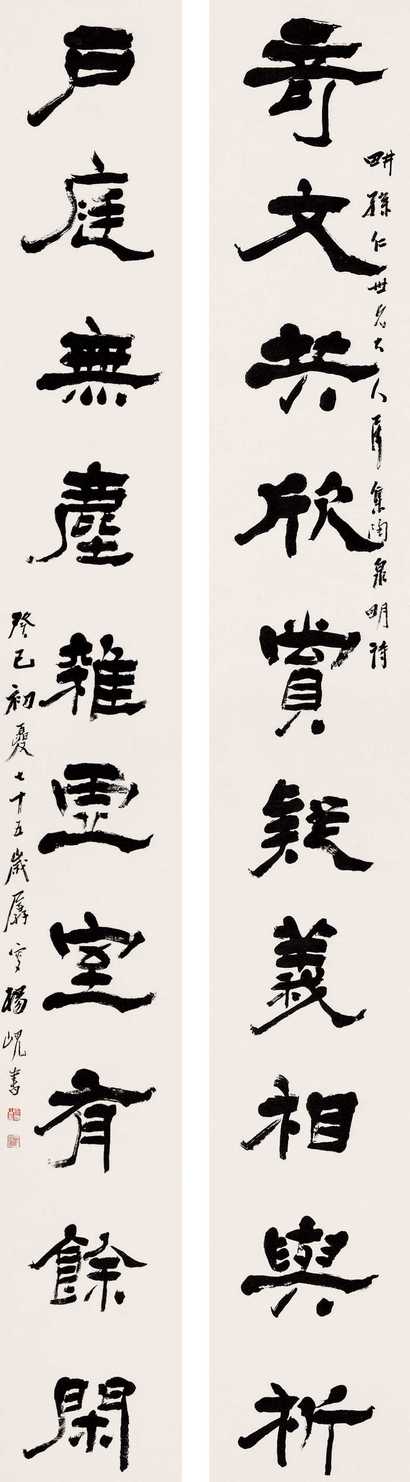 奇文共欣賞疑義相與析
畊孫仁世老大人屬集陶泉明詩
戶庭無塵雜虛室有餘閑
癸巳初夏七十五歲孱叟楊峴書